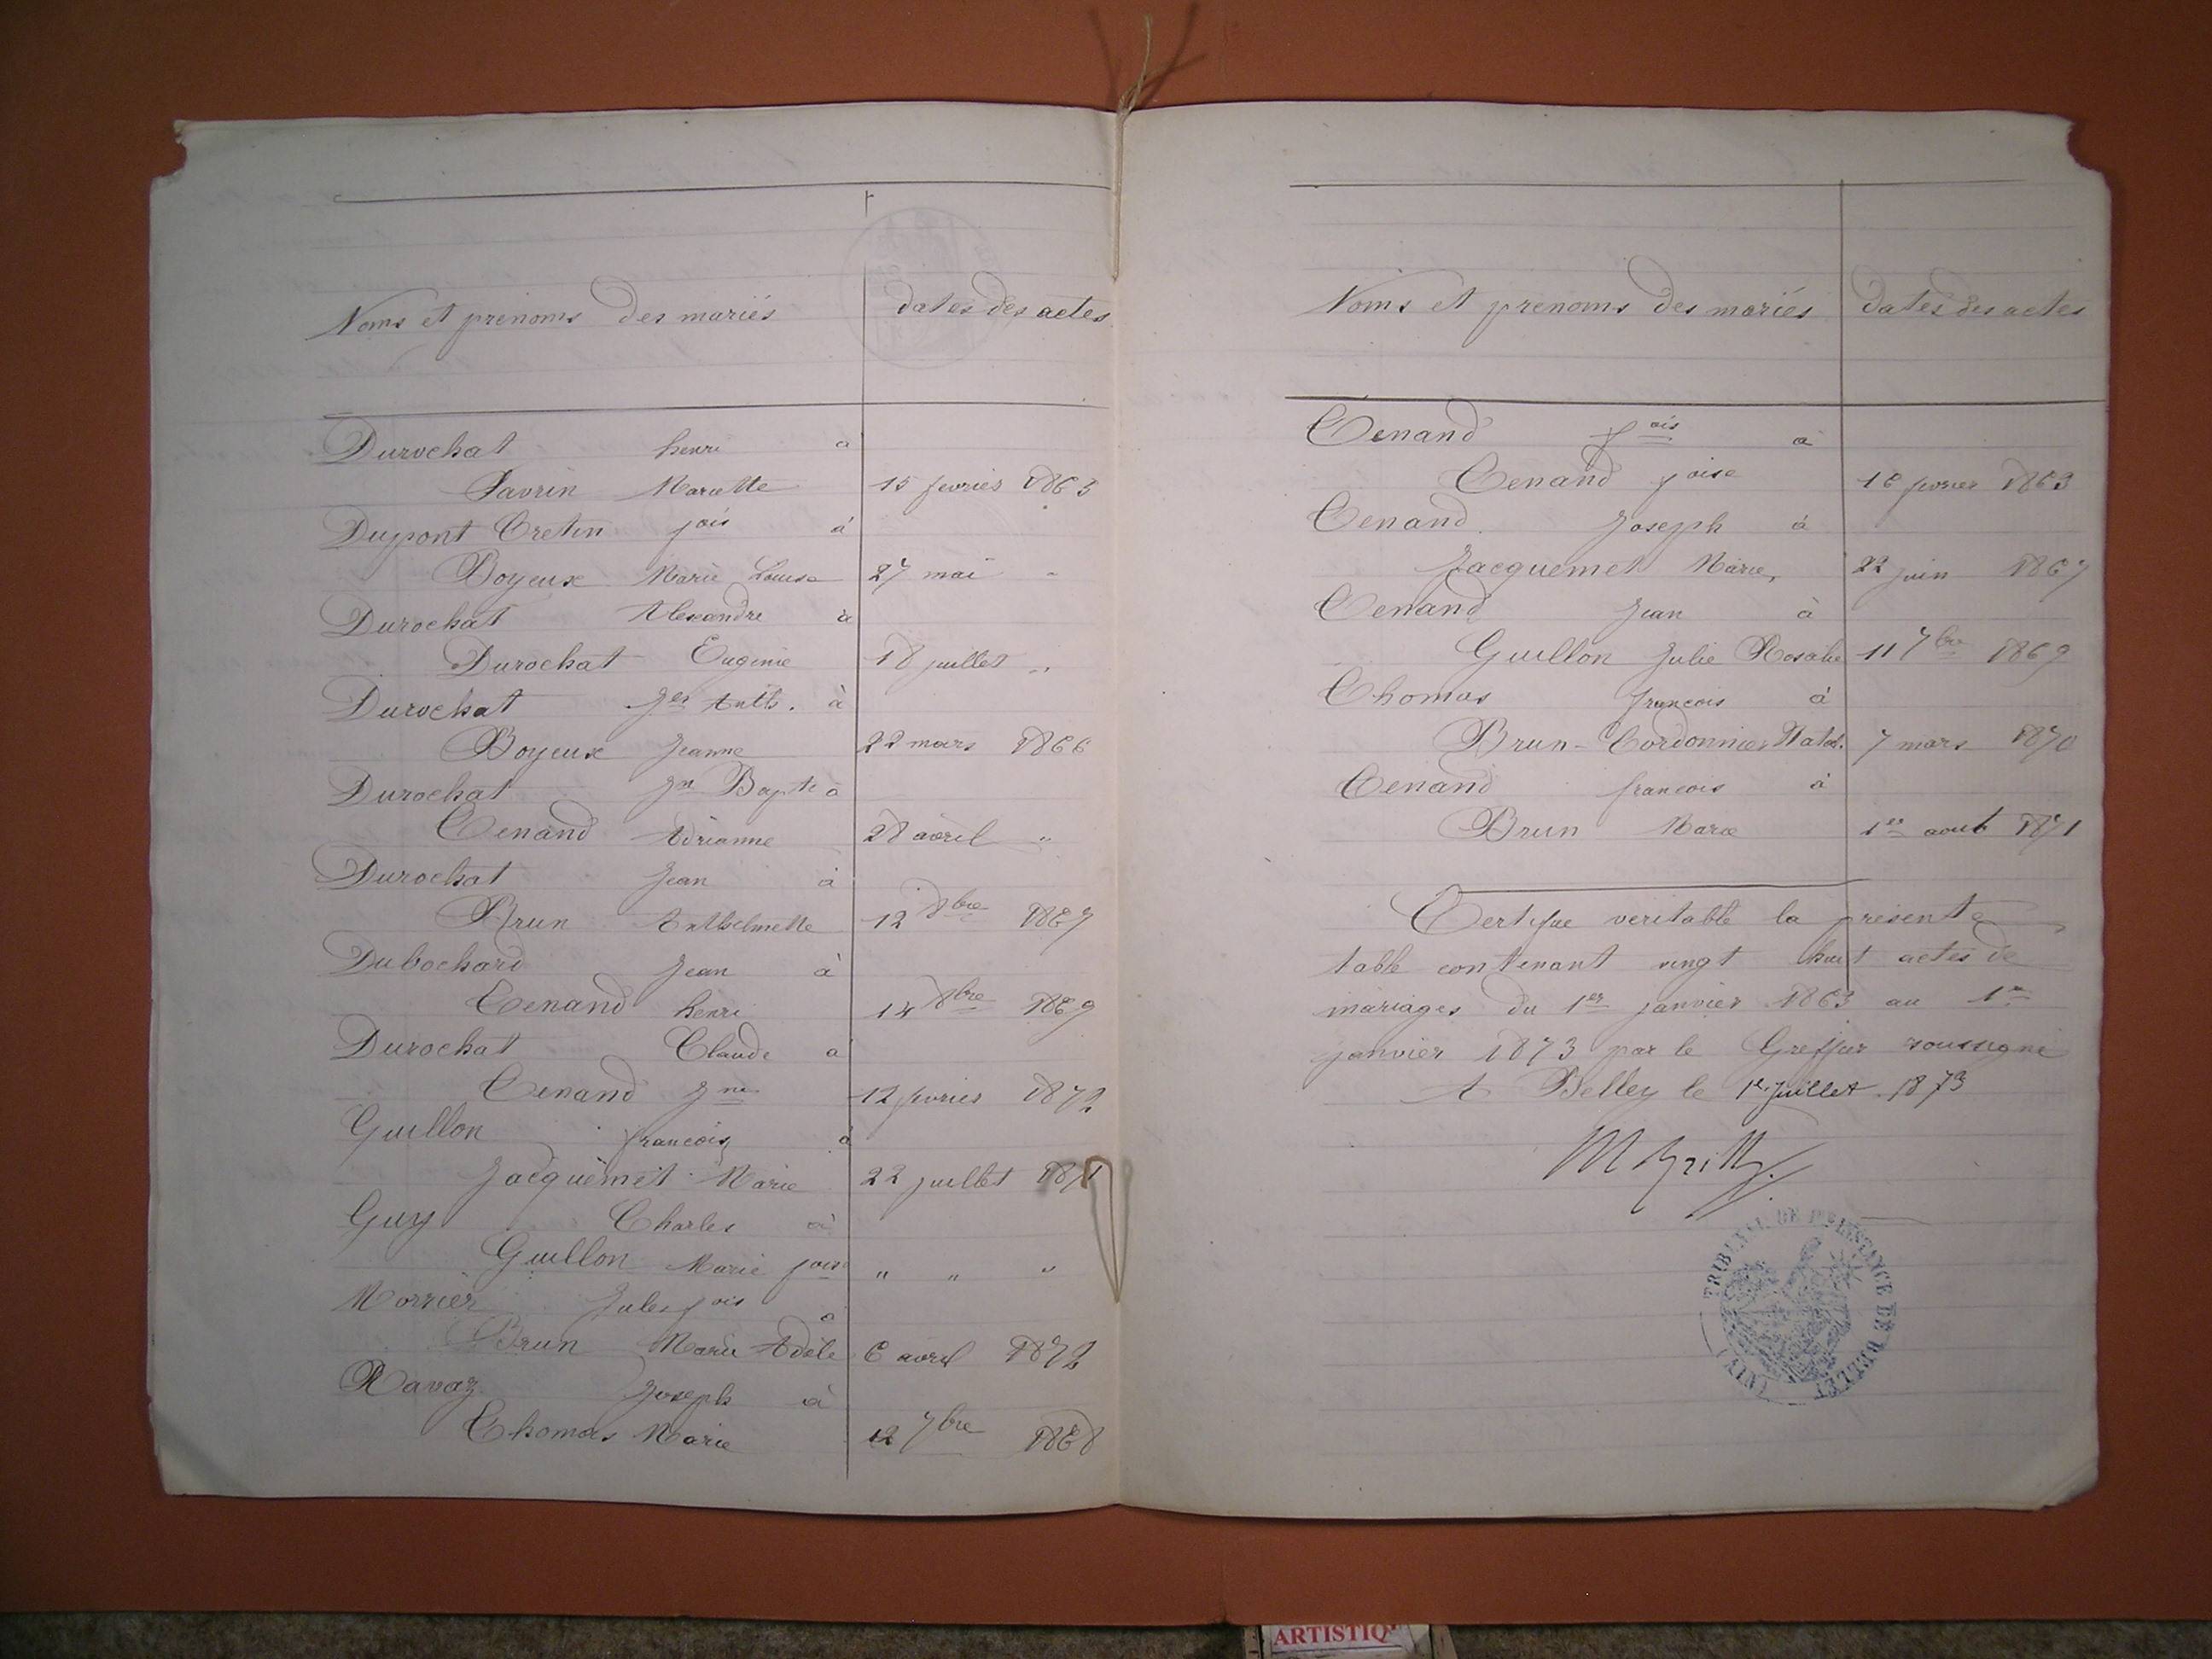 Noms et prenoms des mariés
dates des actes
Durochat henri à
Savrin Mariette 15 fevrier 1865
Dupont Cretin fois à
Boyeux Marie Louise 27 mai "
Durochat Alexandre à
Durochat Eugenie 18 juillet "
Durochat Jes Anth. à
Boyeux Jeanne 22 mars 1866
Durochat Jn Bapte à
Tenand Adrianne 28 avril "
Durochat Jean à
Brun Anthelmette 12 8bre 1867
Dubochard Jean à
Tenand henri 14 8bre 1869
Durochat Claude à
Tenand Jne 12 fevrier 1872
Guillon francois à
Jacquemet Marie 22 juillet 1871
Guy Charles à
Guillon Marie foise " " "
Morrier Jules fois à
Brun Marie Adèle 6 avril 1872
Ravaz Joseph à
Thomas Marie 12 7bre 1868
Noms et prenoms des mariés
dates des actes
Tenand fois à
Tenand foise 16 fevrier 1863
Tenand Joseph à
Jacquemet Marie 22 juin 1867
Tenand Jean à
Guillon Julie Rosalie 11 7bre 1869
Thomas francois à
Brun-Cordonnier Natal. 7 mars 1870
Tenand francois à
Brun Marie 1er aout 1871
Certifie veritable la presente
table contenant vingt huit actes de
mariages du 1er janvier 1863 au 1er
janvier 1873 par le Greffier soussigné
A Belley le 1er juillet 1873
TRIBUNAL DE 1RE INSTANCE DE BELLEY
(AIN)
ARTISTIQ